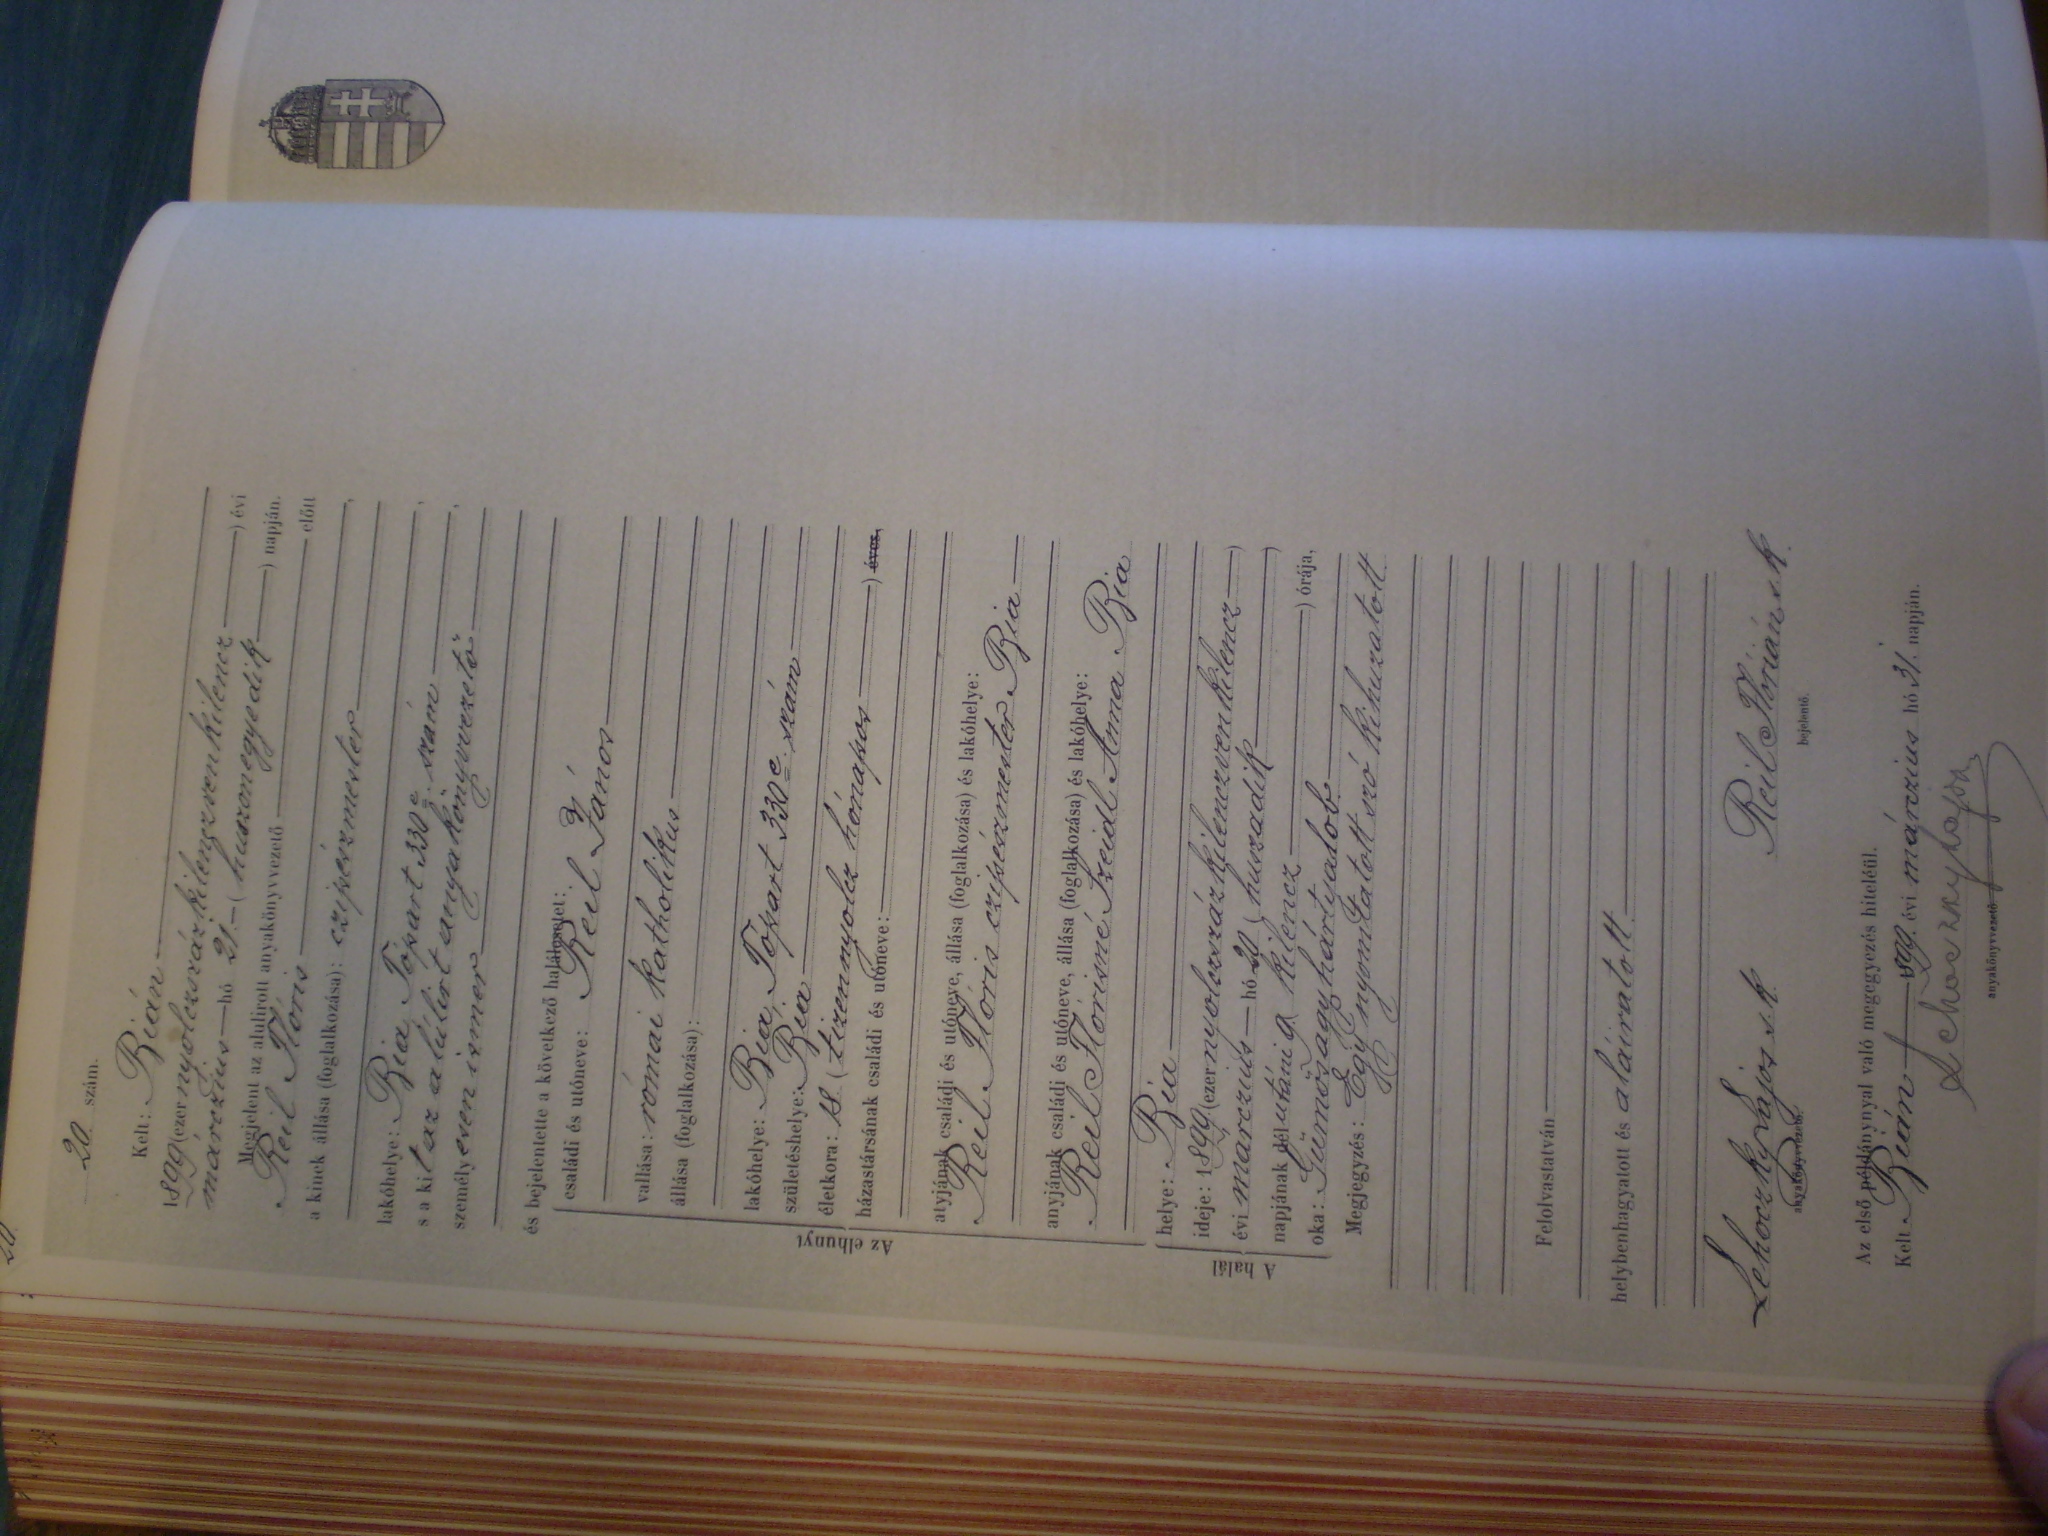 20. szám.
Kelt: Bián
1899 (ezernyolczszázkilenczvenkilencz) évi
márczius hó 21. (huszonegyedik) napján.
Megjelent az alulirott anyakönyvvezető előtt
Reil Flóris
a kinek állása (foglalkozása): czipészmester,
lakóhelye: Bia, Tópart 330 e. szám,
s a kit az alulirt anyakönyvvezető
személyesen ismer,
és bejelentette a következő halálesetet:
Az elhunyt
családi és utóneve: Reil János
vallása: római katholikus
állása (foglalkozása):
lakóhelye: Bia, Tópart 330 e. szám
születéshelye: Bia
életkora: 18. (tizennyolcz hónapos) éves,
házastársának családi és utóneve:
atyjának családi és utóneve, állása (foglalkozása) és lakóhelye:
Reil Flóris czipészmester Bia
anyjának családi és utóneve, állása (foglalkozása) és lakóhelye:
Reil Flórisné Szeidl Anna Bia
A halál
helye: Bia
ideje: 1899 (ezernyolczszázkilenczvenkilencz)
évi marczius hó 20 (huszadik)
napjának dél utáni 9 (kilencz) órája,
oka: Gümős agyhártyalob
Megjegyzés: Egy nyomtatott szó kihuzatott
Felolvastatván
helybenhagyatott és aláiratott.
Lehoczky Lajos s.k. Reil Flórián s.k.
anyakönyvvezető. bejelentő.
Az első példánynyal való megegyezés hiteléül.
Kelt Bián 899. évi márczius hó 31. napján.
anyakönyvvezető